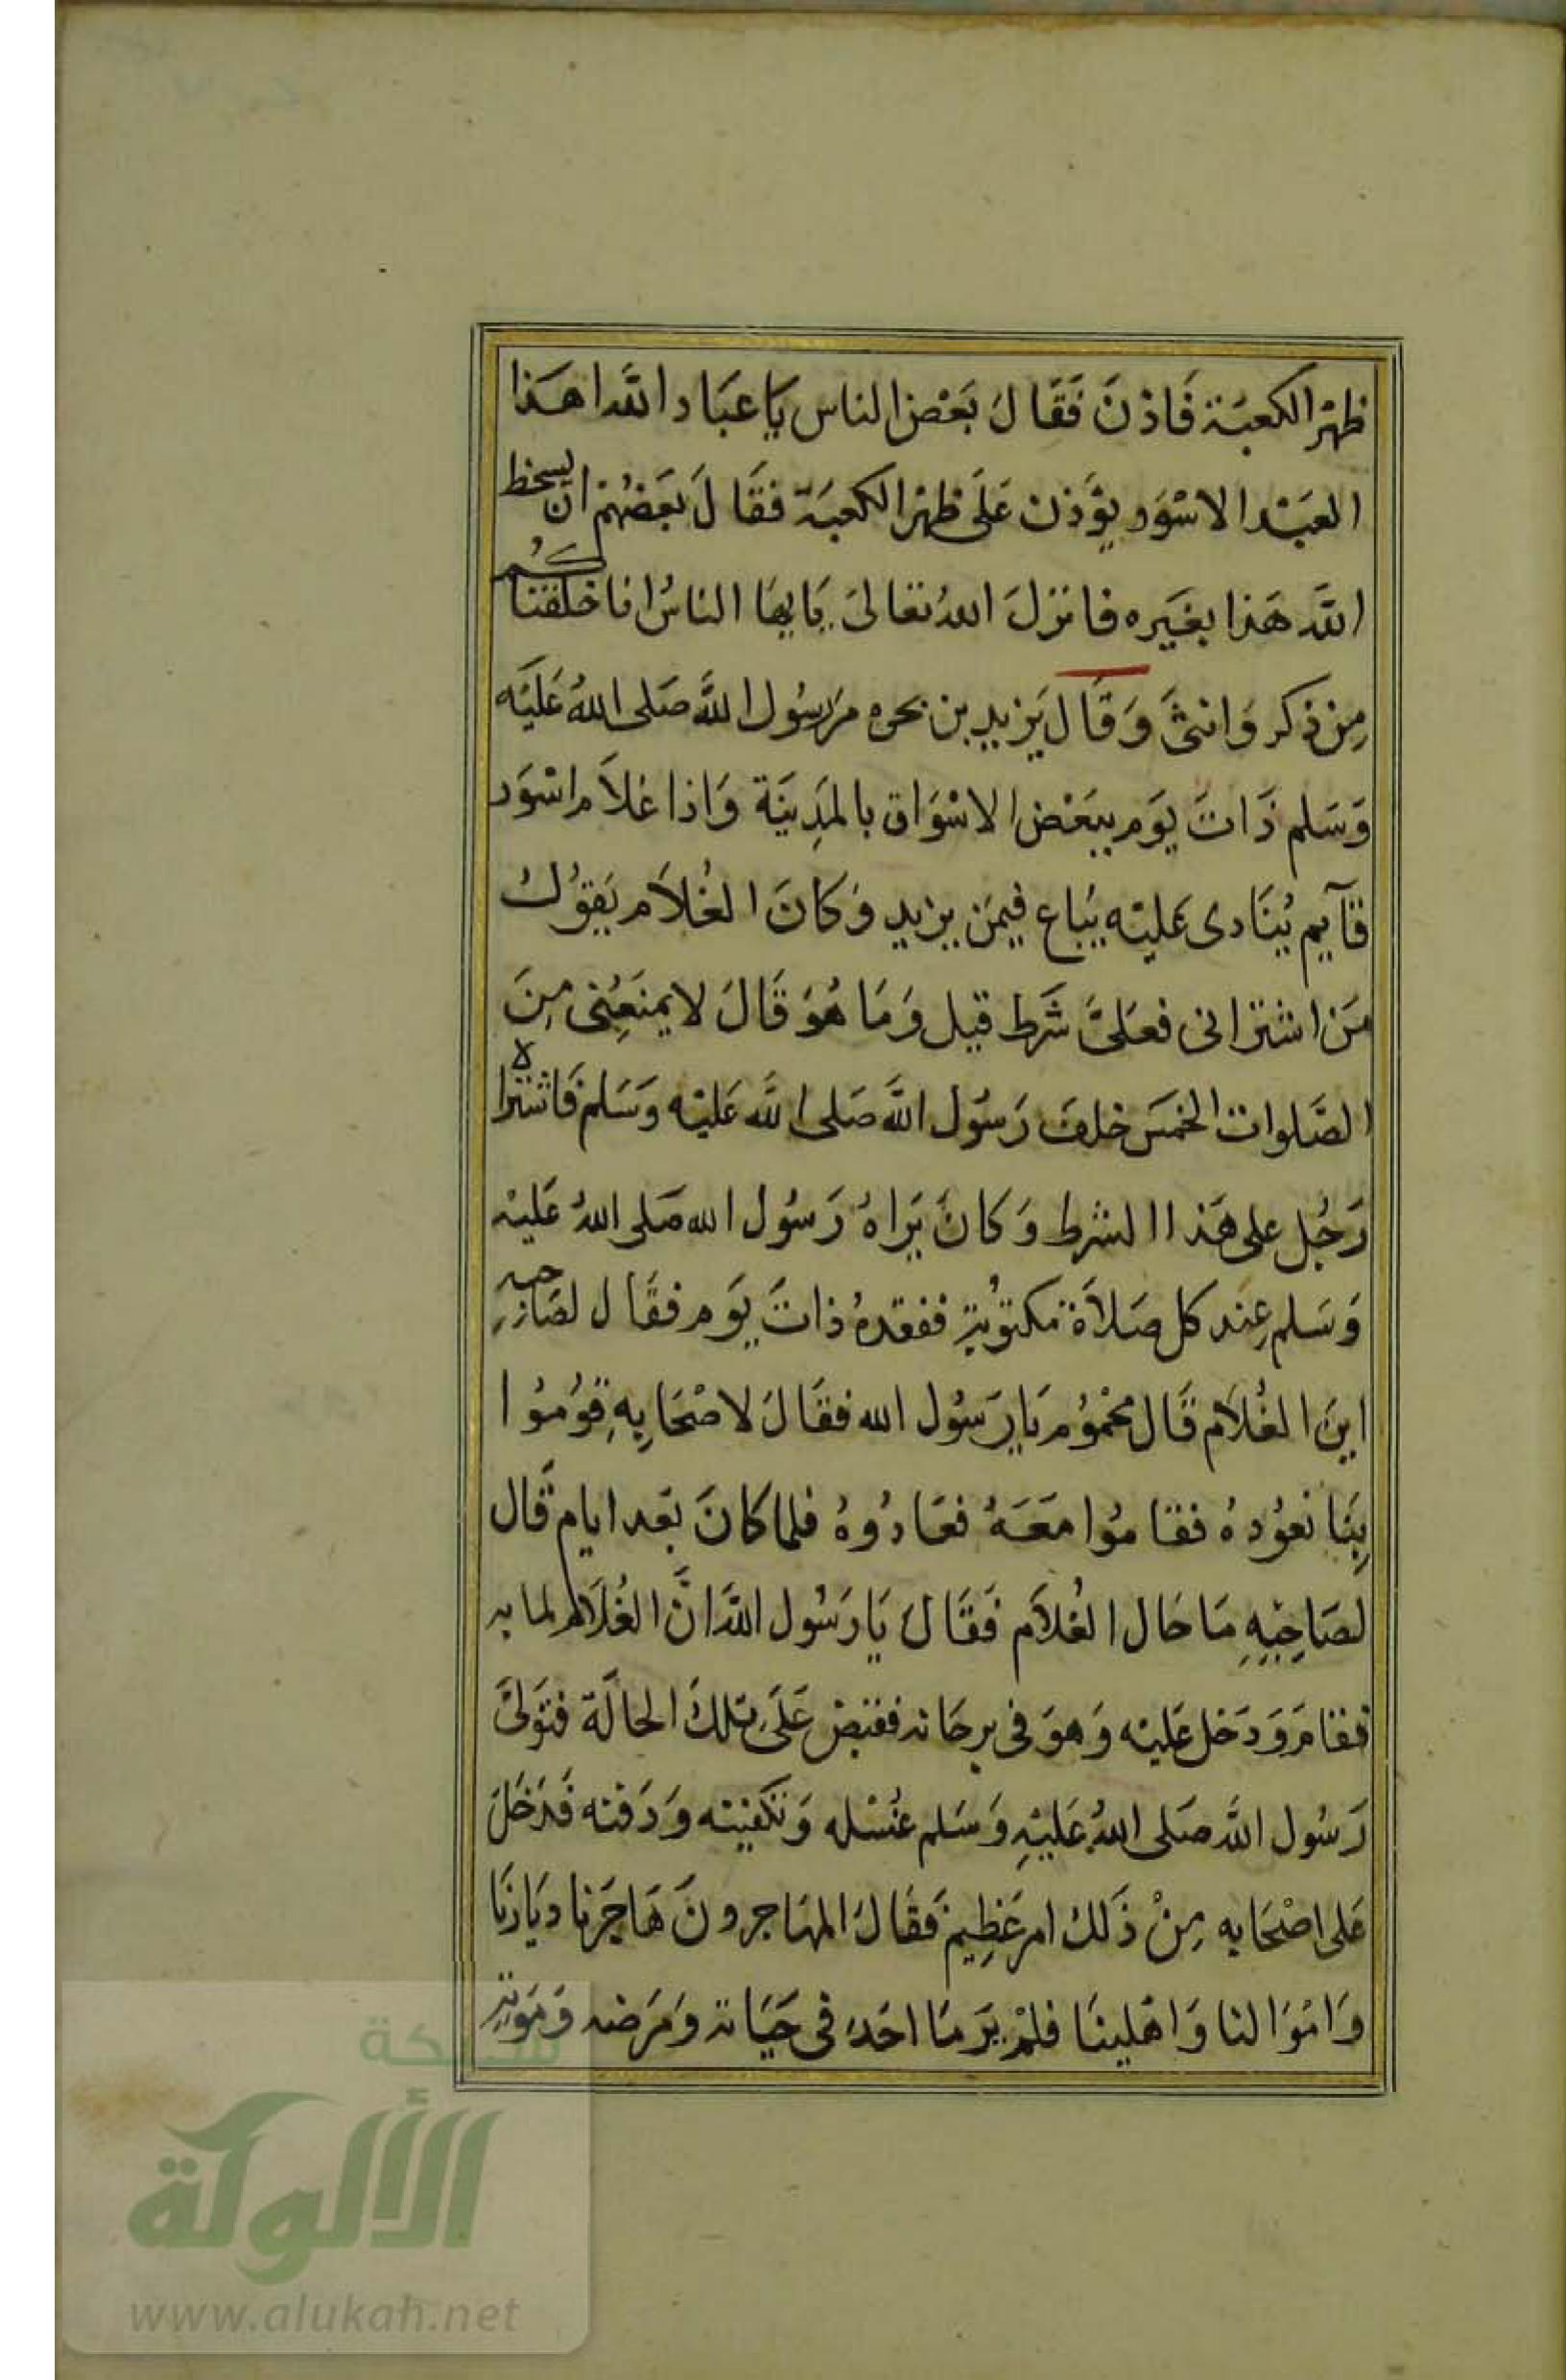 ظهْر الكعبَة فَاذنَ فَقَالَ بَعْض الناس يَا عبَاد اللَّه اهَذا
العَبْد الاسْوَد يؤَذن عَلَى ظهْر الكعبَة فقَالَ بَعَضهُمْ ان يسخط
اللَّه هَذا بغَيره فانزلَ اللهُ تعالىَ يَايهَا الناسُ انا خلقناكُم
مِن ذكر وَانثىَ وَقَال يَزيد بن شجره مرَ رسُول اللَّه صَلى اللهُ عَليْه
وَسَلم ذَاتَ يَوم ببَعْض الاسْوَاق بالمدِينَة وَاذا غلاَم اسْوَد
قآيم يُنَادى عَليْه يبَاع فيمَن يزيد وَكانَ الغُلاَم يَقوُل
مَن اشتراني فعَلىَّ شَرط قيل وَمَا هُوَ قَالَ لا يمنَعُنى مِنَ
الصَّلوات الخمسَ خلفَ رَسُول اللَّه صَلى اللَّه عَليْه وَسَلمْ فَاشتراه
رَجُل على هَذا الشرط وَكانَ يَراهُ رَسُول الله صَلى اللهُ عَليْه
وَسَلم عِند كل صَلاَة مكتوُبةٍ ففقدهُ ذاتَ يَوم فقَال لصَاحبهِ
اينَ الغُلاَم قَال محْموُم يَا رَسُول الله فقَالَ لاصْحَابِهِ قوُمُوا
بِنَا نعوُدهُ فقامُوا مَعَهُ فعَادُوهُ فلما كانَ بَعد ايام قَال
لصَاحِبِهِ مَا حَال الغُلاَم فَقَالَ يَا رَسُول اللَّه انَّ الغُلاَم لما به
فقامَ وَدَخل عَليْه وَهوَ فى برحَانه فقبض عَلَى تلكَ الحالَة فتوَلىَّ
رَسُول اللَّه صَلى اللهُ عَليْهِ وَسَلم غسْله وَتكفينه وَدَفنه فَدَخَلَ
عَلى اصْحَابه مِنْ ذَلك امر عَظِيمْ فَقَالَ المهَاجرونَ هَاجَرنا ديَارنَا
وَامْوَالنا وَاهْلينَا فلمْ يَر منَا احَد فى حَيَاته وَمَرَضه وَمَوتهِ
شبكة
الألوكة
www.alukah.net